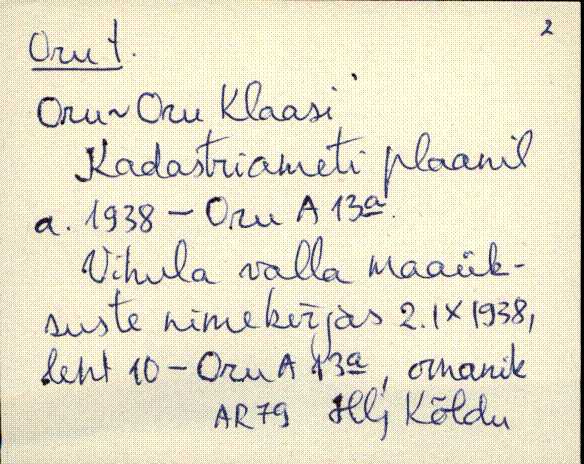 2
Oru t.
Oru ~ Oru Klaasi
Kadastriameti plaanil
a. 1938 – Oru A 13a.
Vihula valla maaük-
suste nimekirjas 2.IX 1938,
leht 10 – Oru A 13a, omanik
AR79 Hlj Kõldu